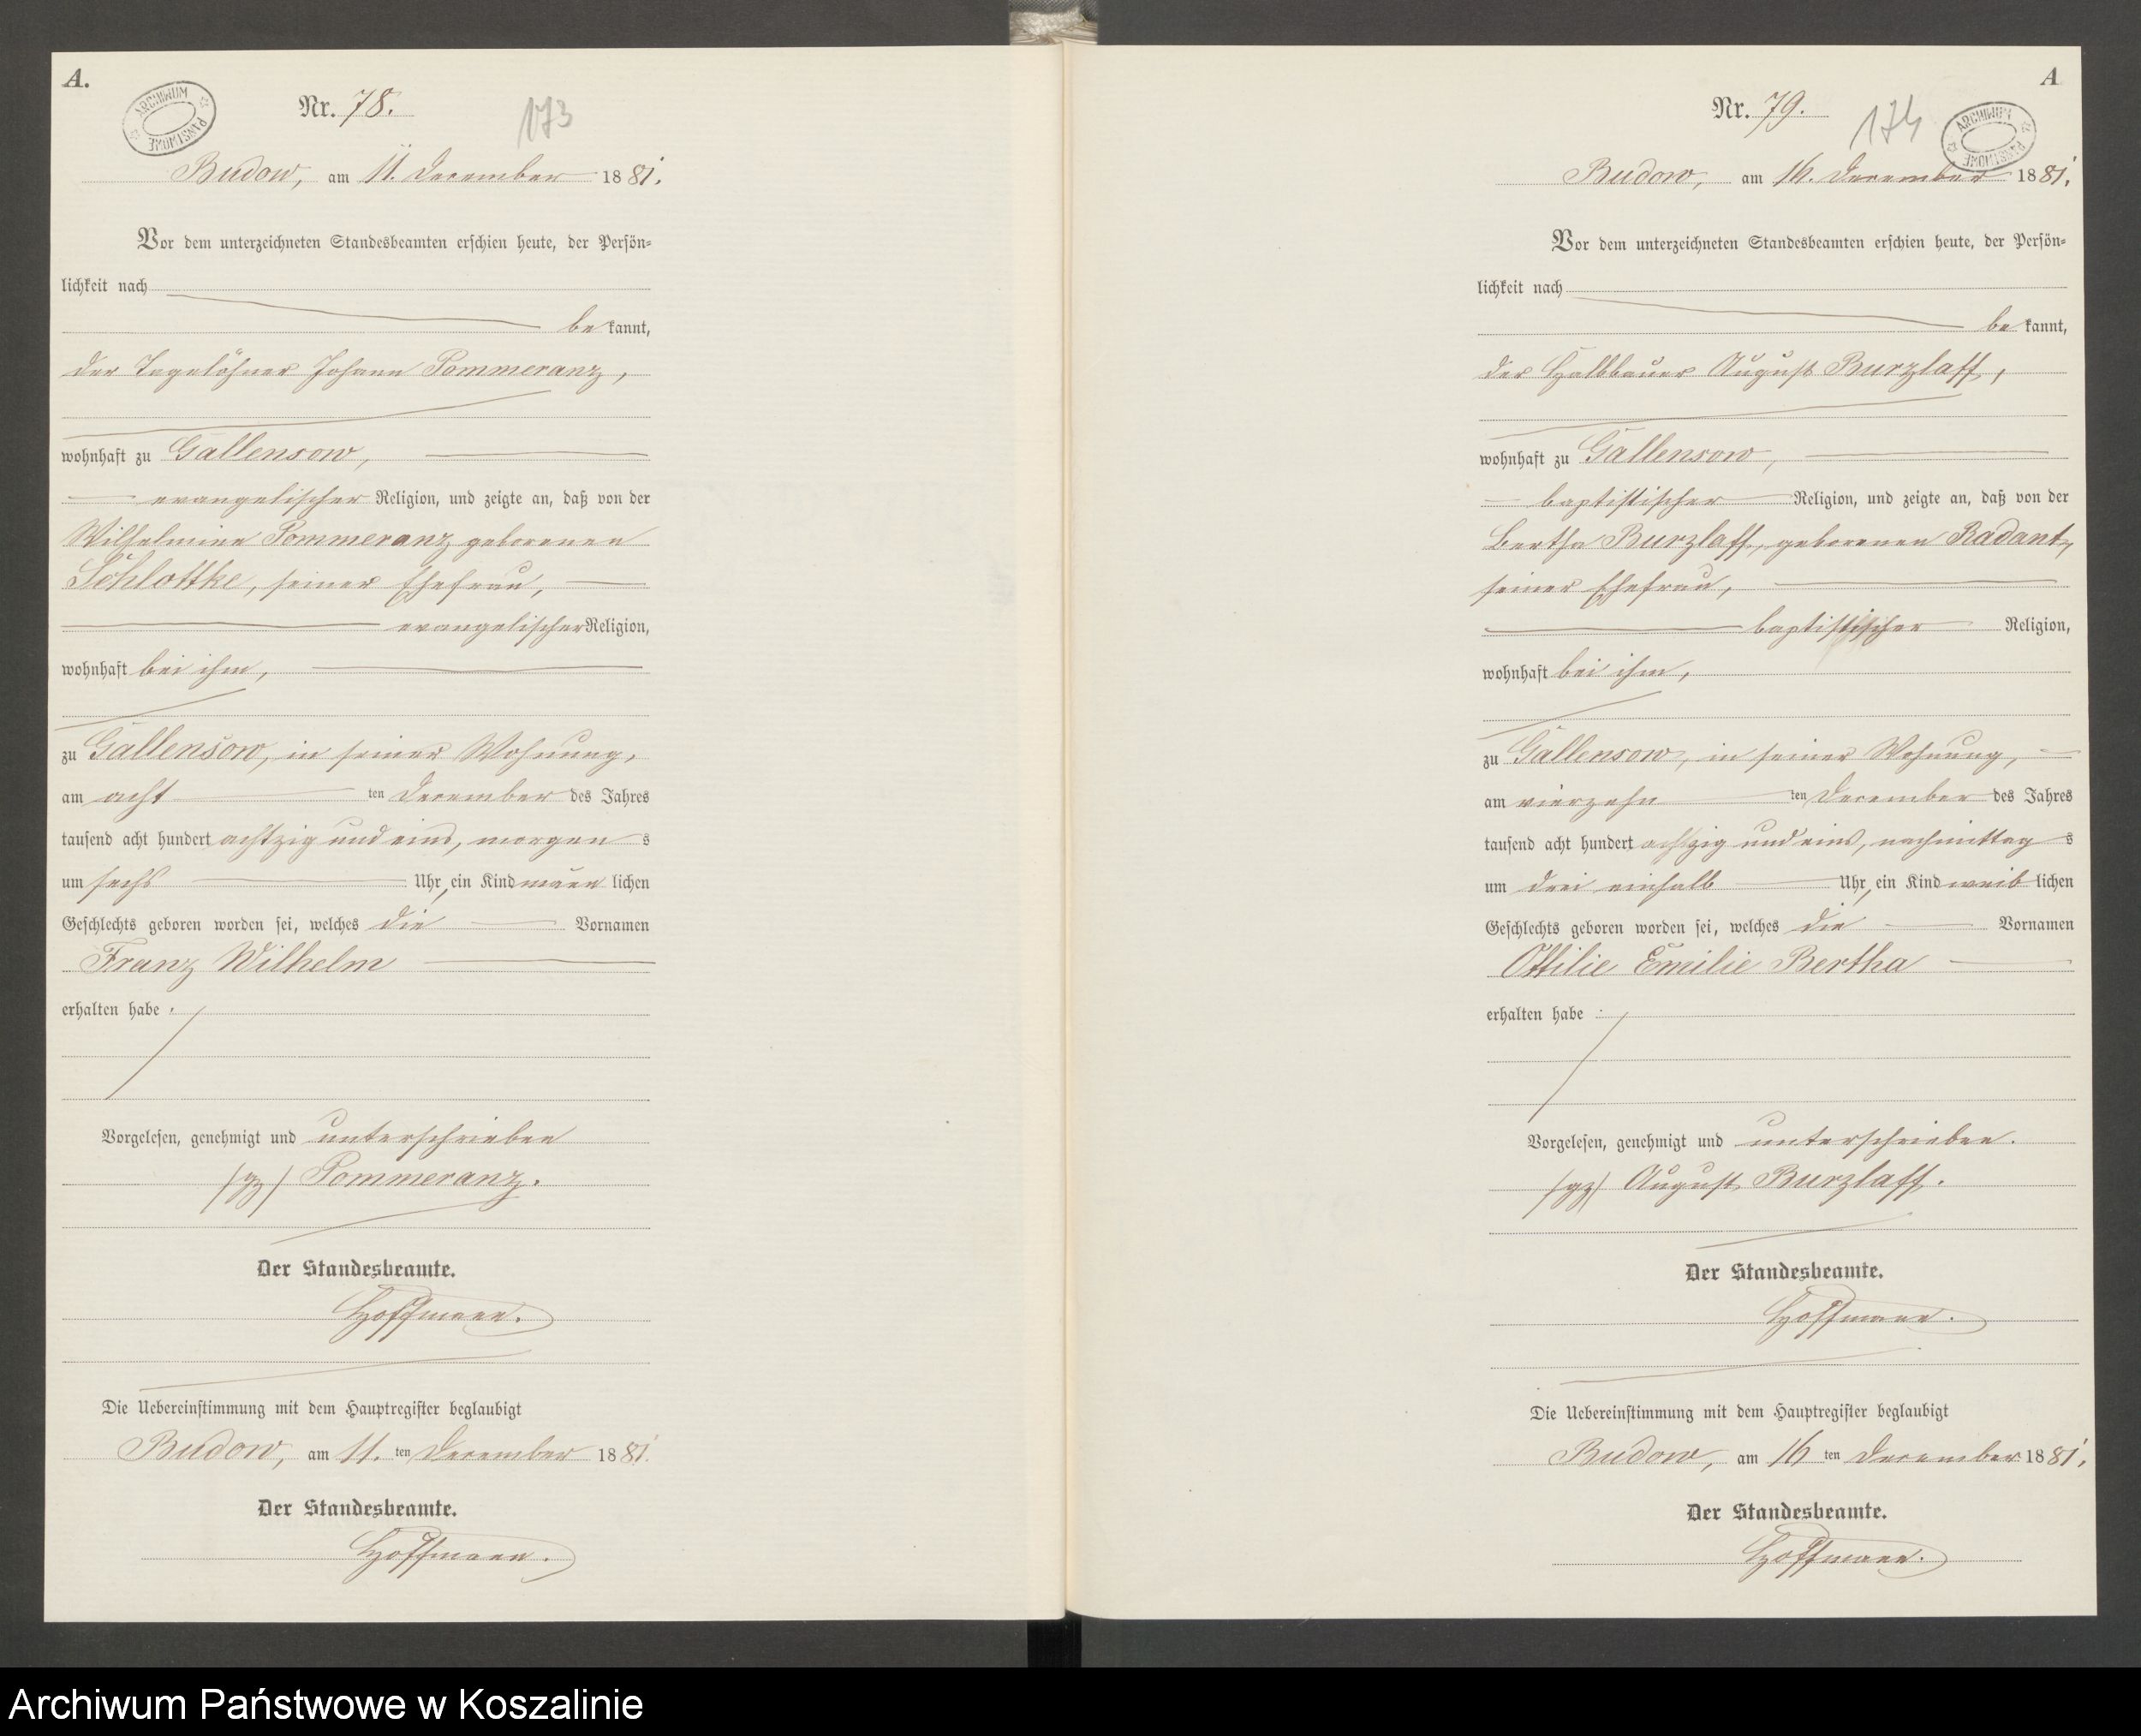 A.
ARCHIWUM PAŃSTWOWE
Nr. 78.
173
Budow, am 11. December 1881.
Vor dem unterzeichneten Standesbeamten erschien heute, der Persön=
lichkeit nach
be kannt,
der Tagelöhner Johann Pommeranz,
wohnhaft zu Gallensow,
evangelischer Religion, und zeigte an, daß von der
Wilhelmine Pommeranz geborenen
Schlottke, seiner Ehefrau,
evangelischer Religion,
wohnhaft bei ihm,
zu Gallensow, in seiner Wohnung,
am acht ten December des Jahres
tausend acht hundert achtzig und eins, morgen s
um sechs Uhr, ein Kind männ lichen
Geschlechts geboren worden sei, welches die Vornamen
Franz Wilhelm
erhalten habe.
Vorgelesen, genehmigt und unterschrieben
(gz) Pommeranz.
Der Standesbeamte.
Hoffmann.
Die Uebereinstimmung mit dem Hauptregister beglaubigt
Budow, am 11. ten December 1881.
Der Standesbeamte.
Hoffmann.
A
Nr. 79.
174
ARCHIWUM PAŃSTWOWE
Budow, am 16. December 1881.
Vor dem unterzeichneten Standesbeamten erschien heute, der Persön=
lichkeit nach
be kannt,
der Halbbauer August Burzlaff,
wohnhaft zu Gallensow,
baptistischer Religion, und zeigte an, daß von der
Bertha Burzlaff, geborenen Radant,
seiner Ehefrau,
baptistischer Religion,
wohnhaft bei ihm,
zu Gallensow, in seiner Wohnung,
am vierzehn ten December des Jahres
tausend acht hundert achtzig und eins, nachmittag s
um drei einhalb Uhr, ein Kind weib lichen
Geschlechts geboren worden sei, welches die Vornamen
Ottilie Emilie Bertha
erhalten habe.
Vorgelesen, genehmigt und unterschrieben.
(gz) August Burzlaff.
Der Standesbeamte.
Hoffmann.
Die Uebereinstimmung mit dem Hauptregister beglaubigt
Budow, am 16 ten December 1881.
Der Standesbeamte.
Hoffmann.
Archiwum Państwowe w Koszalinie